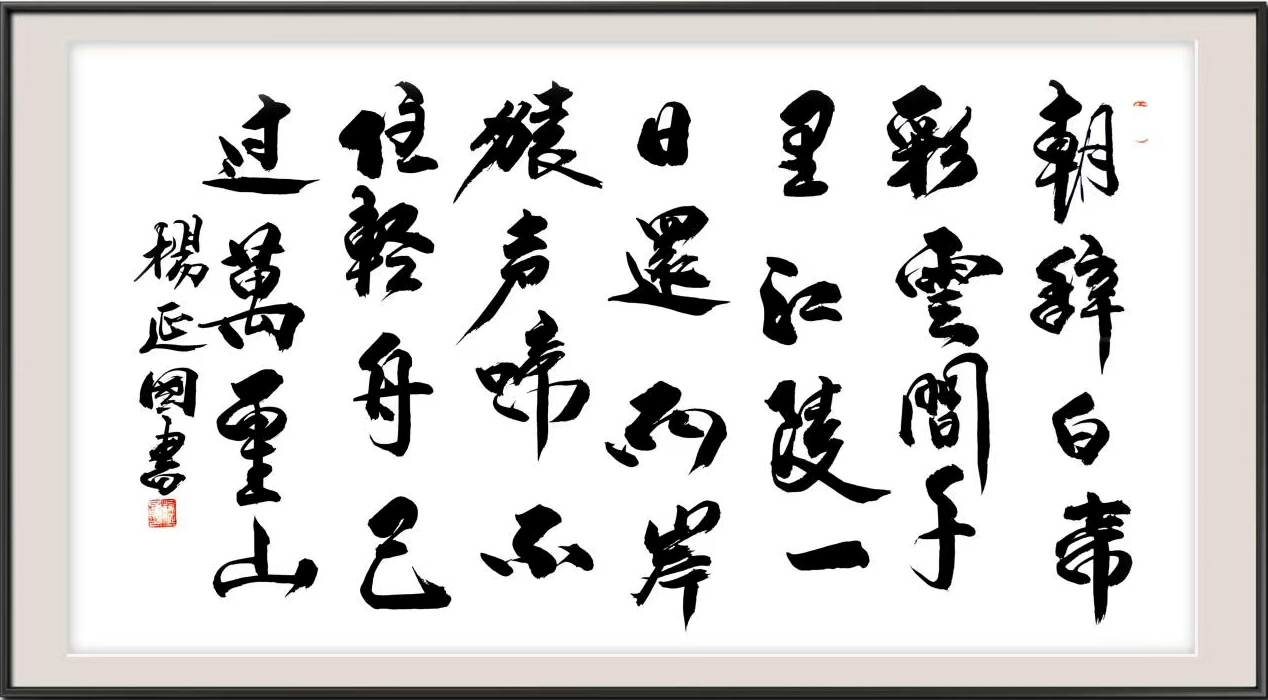 朝辞白帝
彩雲間千
里江陵一
日還两岸
猿声啼不
住軽舟已
过萬重山
楊延國書